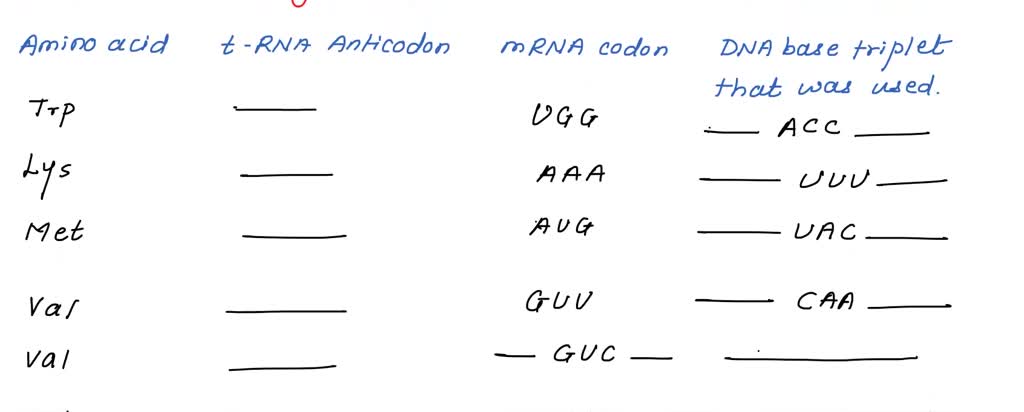 Amino acid t-RNA Anticodon mRNA codon DNA base triplet
that was used.
Trp ____ UGG ___ ACC ___
Lys ____ AAA ___ UUU ___
Met ____ AUG ___ UAC ___
Val ____ GUU ___ CAA ___
Val ____ __ GUC __ ____